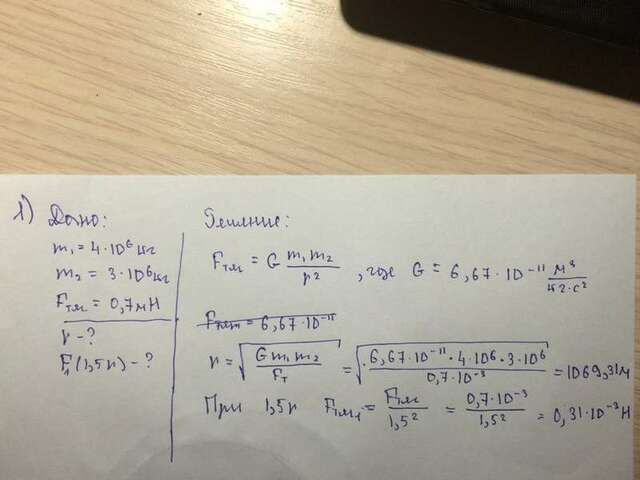 1) Дано:
m₁ = 4·10⁶ кг
m₂ = 3·10⁶ кг
Fтяг = 0,7мН
r - ?
F₁(1,5r) - ?
Решение:
Fтяг = G m₁m₂/r², где G = 6,67·10⁻¹¹ м³/кг·с²
Fтяг = 6,67·10⁻¹¹
r = √(G m₁m₂/Fт) = √(6,67·10⁻¹¹·4·10⁶·3·10⁶/0,7·10⁻³) = 1069,31м
При 1,5r Fтяг₁ = Fтяг/1,5² = 0,7·10⁻³/1,5² = 0,31·10⁻³Н